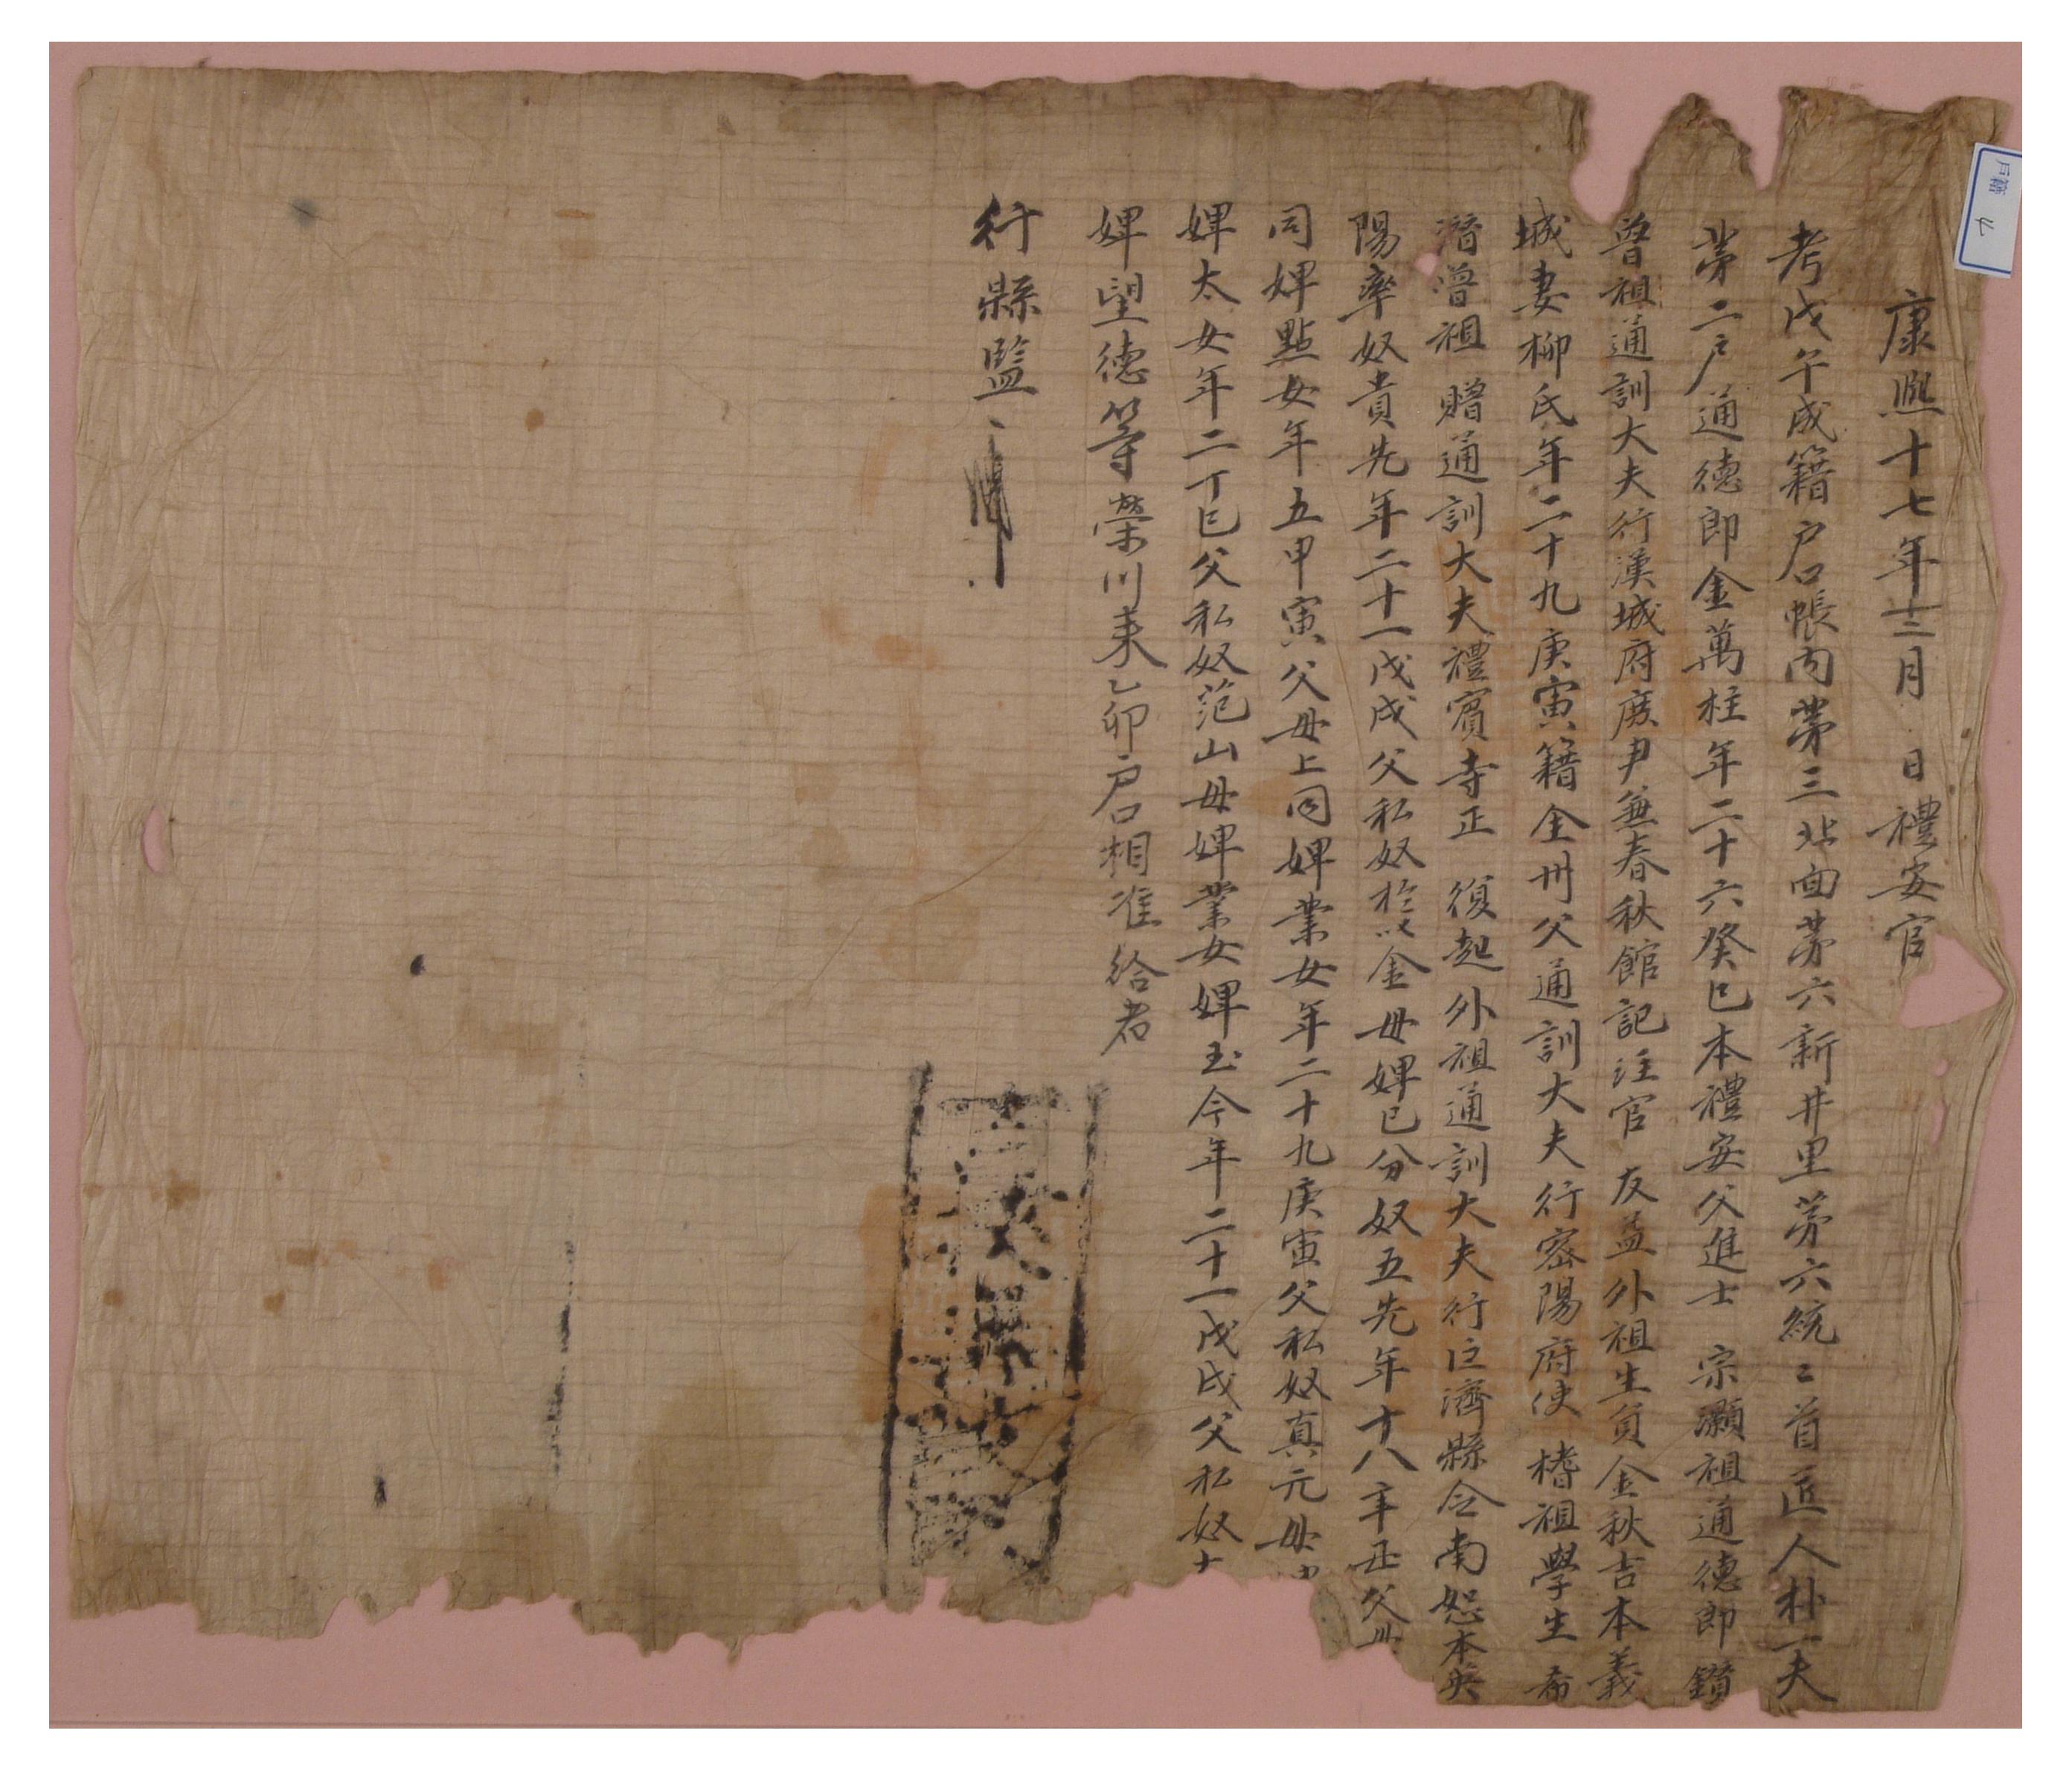 康熙十七年十二月 日禮安官
考戊午成籍户口帳內茅三北面茅六新井里茅六統二首匠人朴一夫
茅二户通德郎金萬柱年二十六癸巳本禮安父進士 宗灝祖通德郎 鑽
曾祖通訓大夫行漢城府庶尹兼春秋館記注官 友益外祖生員金秋吉本義
城妻柳氏年二十九庚寅籍全州父通訓大夫行密陽府使 榰祖學生 希
潛曾祖 贈通訓大夫禮賓寺正 復起外祖通訓大夫行巨濟縣令南恕本英
陽率奴貴先年二十一戊戌父私奴於以金母婢已分奴五先年十八辛丑父母
同婢點女年五甲寅父母上同婢業女年二十九庚寅父私奴真元母
婢太女年二丁巳父私奴范山母婢業女婢玉今年二十一戊戌父私奴
婢望德等榮川來乙卯户口相准給者
行縣監
户籍